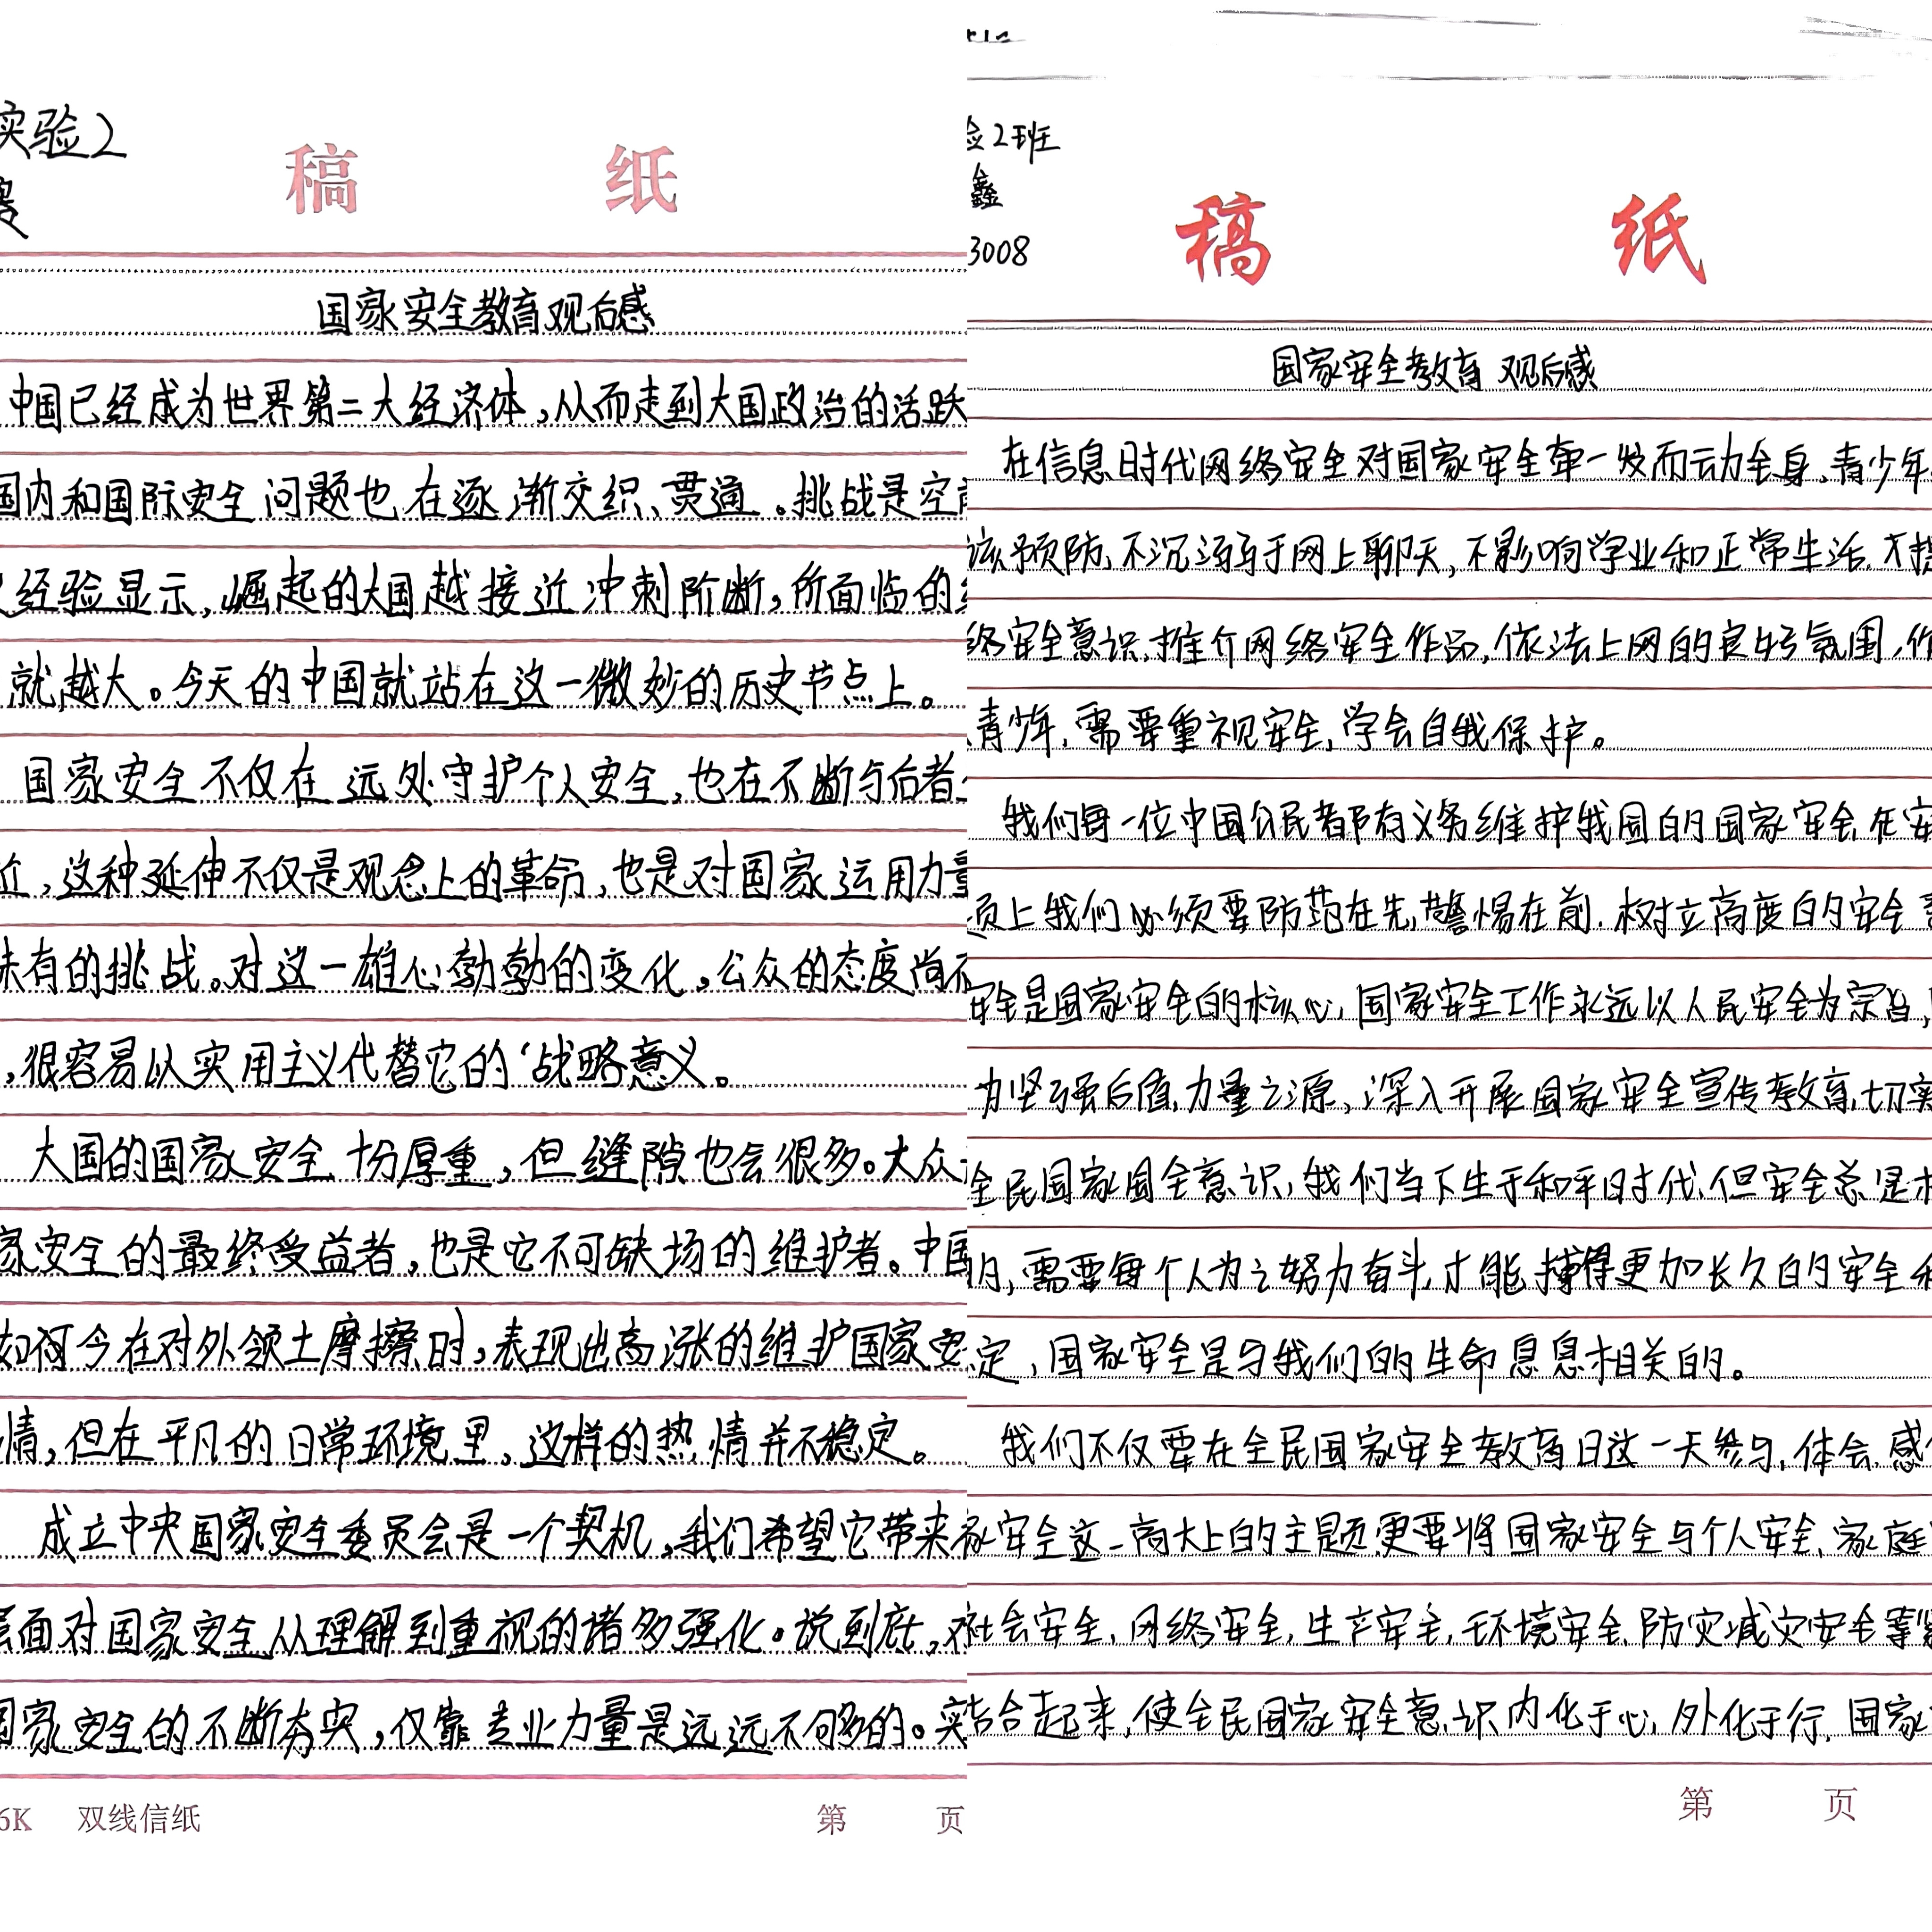 实验2
稿 纸
国家安全教育观后感
中国已经成为世界第二大经济体,从而走到大国政治的活跃
国内和国际安全问题也在逐渐交织、贯通。挑战是空
经验显示,崛起的大国越接近冲刺阶断,所面临的
就越大。今天的中国就站在这一微妙的历史节点上。
国家安全不仅在远处守护个人安全,也在不断与后者
近,这种延伸不仅是观念上的革命,也是对国家运用力量
未有的挑战。对这一雄心勃勃的变化。公众的态度尚不
,很容易以实用主义代替它的‘战略意义。
大国的国家安全十分厚重,但缝隙也会很多。大众
家安全的最终受益者,也是它不可缺场的维护者。中国
如何今在对外领土摩擦时,表现出高涨的维护国家安
情,但在平凡的日常环境里,这样的热情并不稳定。
成立中央国家安全委员会是一个契机,我们希望它带来
层面对国家安全从理解到重视的诸多强化。说到底,对
国家安全的不断夯实,仅靠专业力量是远远不够的。
6K 双线信纸 第 页
验2班
鑫
3008
稿 纸
国家安全教育 观后感
在信息时代网络安全对国家安全牵一发而动全身,青少年
该预防,不沉溺于网上聊天,不影响学业和正常生活,
络安全意识,推介网络安全作品,依法上网的良好氛围,作
青少年,需要重视安全,学会自我保护。
我们每一位中国公民都有义务维护我国的国家安全,在安
上我们必须要防范在先,警惕在前.树立高度的安全意
安全是国家安全的核心,国家安全工作永远以人民安全为宗旨,
为坚强后盾,力量之源、深入开展国家安全宣传教育,切实
全民国家国全意识,我们当下生于和平时代,但安全总是相
的,需要每个人为之努力奋斗,才能搏得更加长久的安全
定,国家安全是与我们的生命息息相关的。
我们不仅要在全民国家安全教育日这一天参与,体会,感
家安全这一高大上的主题,更要将国家安全与个人安全、家庭
社会安全,网络安全,生产安全,环境安全,防灾减灾安全等紧
结合起来,使全民国家安全意识内化于心,外化于行,国家
第 页